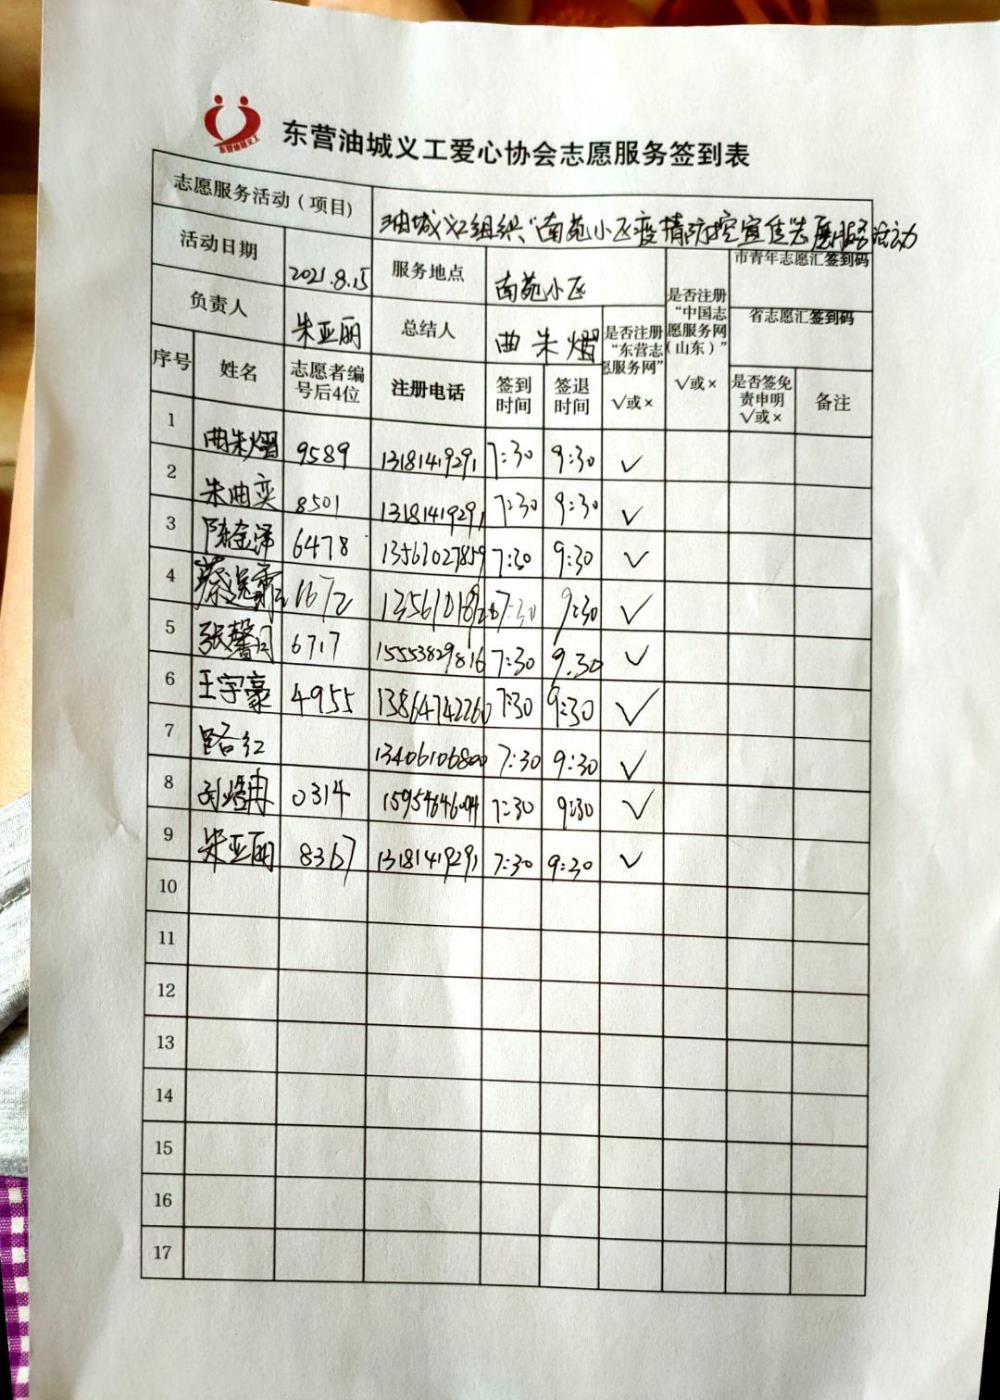 东营油城义工
东营油城义工爱心协会志愿服务签到表
志愿服务活动（项目） 油城义工组织“南苑小区疫情防控宣传”志愿服务活动
活动日期 2021.8.15 服务地点 南苑小区 是否注册“中国志愿服务网（山东）” √或× 市青年志愿汇签到码
负责人 朱亚丽 总结人 曲朱熠 是否注册“东营志愿服务网” √或× 省志愿汇签到码
序号 姓名 志愿者编号后4位 注册电话 签到时间 签退时间 是否签免责申明 √或× 备注
1 曲朱熠 9589 13181419291 7:30 9:30 √
2 朱曲奕 8501 13181419291 7:30 9:30 √
3 陈金泽 6478 13561027859 7:30 9:30 √
4 1672 7:30 9:30 √
5 张馨月 6717 15553829816 7:30 9.30 √
6 王宇豪 4955 13864742260 7:30 9:30 √
7 路红 13406106800 7:30 9:30 √
8 0314 7:30 9:30 √
9 朱亚丽 8367 13181419291 7:30 9:30 √
10
11
12
13
14
15
16
17